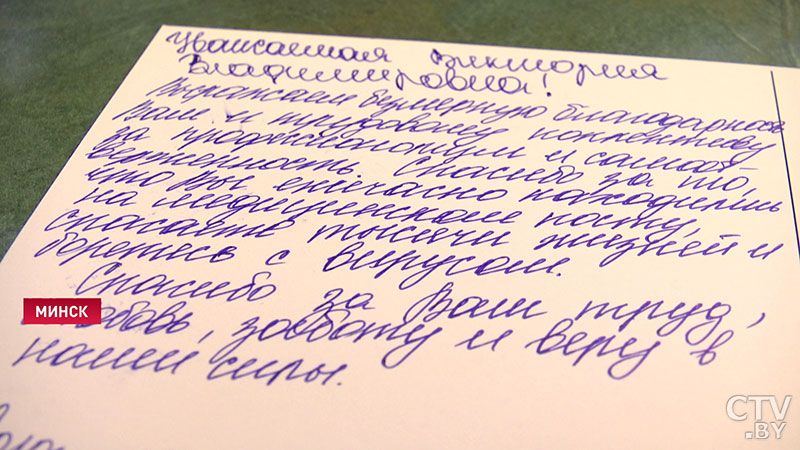 Уважаемая Виктория
Владимировна!
Выражаем безмерную благодарность
Вам и трудовому коллективу
за профессионализм и самоот-
верженность. Спасибо за то,
что Вы ежечасно находились
на медицинском посту,
спасаете тысячи жизней и
боретесь с вирусом.
Спасибо за Ваш труд,
любовь, заботу и веру в
наши силы.
МИНСК
CTV
.BY